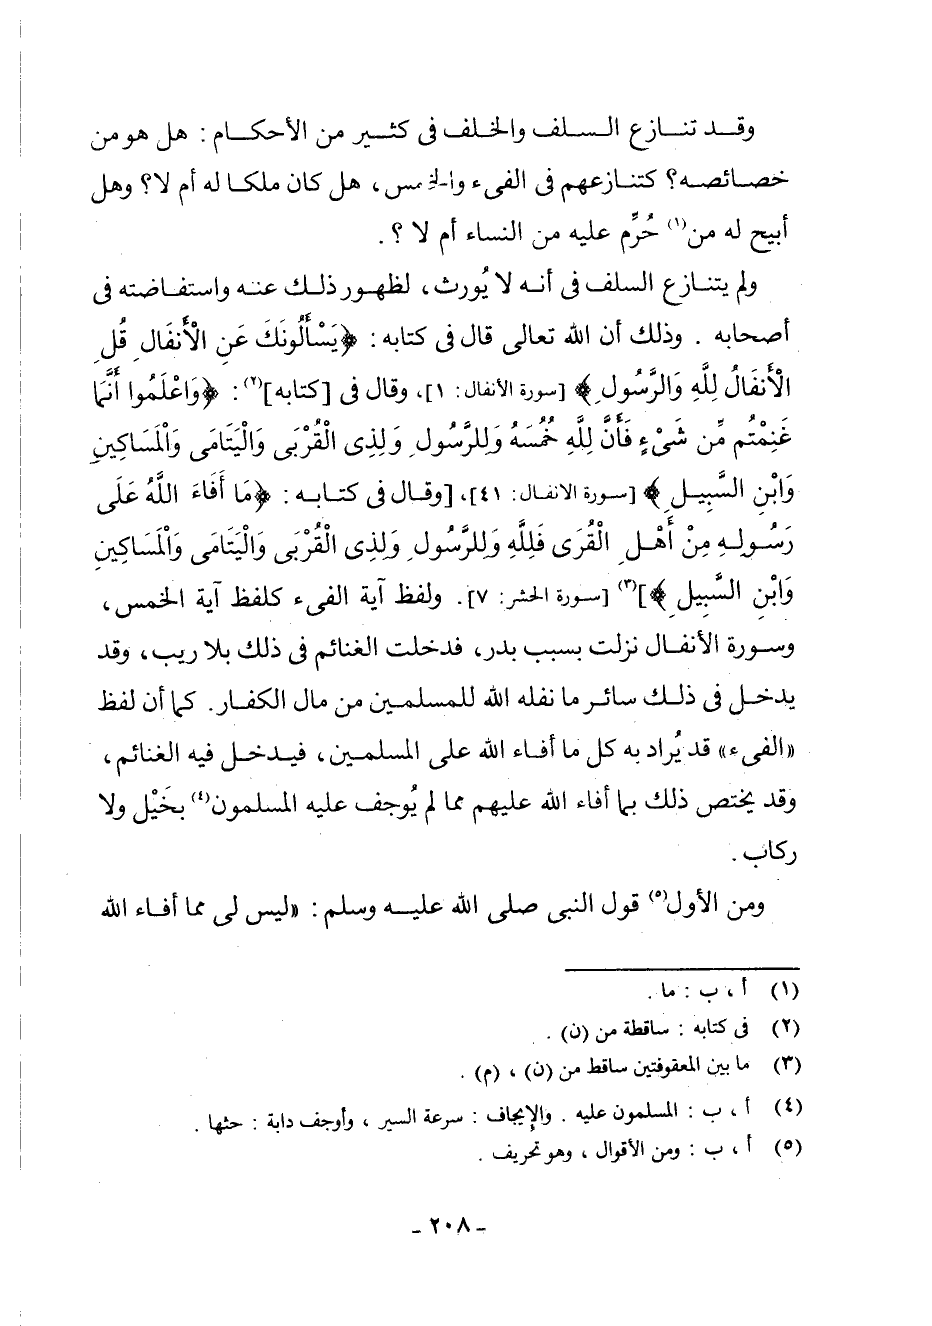 وقد تنازع السلف والخلف فى كثير من الأحكام : هل هو من
خصائصه؟ كتنازعهم فى الفىء والخمس، هل كان ملكا له أم لا؟ وهل
أبيح له من(١) حُرِّم عليه من النساء أم لا ؟ .
ولم يتنازع السلف فى أنه لا يُورث، لظهور ذلك عنه واستفاضته فى
أصحابه . وذلك أن الله تعالى قال فى كتابه : ﴿يَسْأَلُونَكَ عَنِ الْأَنفَالِ قُلِ
الْأَنفَالُ لِلَّهِ وَالرَّسُولِ﴾ [سورة الأنفال: ١]، وقال فى [كتابه](٢): ﴿وَاعْلَمُوا أَنَّمَا
غَنِمْتُم مِّن شَىْءٍ فَأَنَّ لِلَّهِ خُمُسَهُ وَلِلرَّسُولِ وَلِذِى الْقُرْبَى وَالْيَتَامَى وَالْمَسَاكِينِ
وَابْنِ السَّبِيلِ﴾ [سورة الانفال: ٤١]، [وقال فى كتابه : ﴿مَا أَفَاءَ اللَّهُ عَلَى
رَسُولِهِ مِنْ أَهْلِ الْقُرَى فَلِلَّهِ وَلِلرَّسُولِ وَلِذِى الْقُرْبَى وَالْيَتَامَى وَالْمَسَاكِينِ
وَابْنِ السَّبِيلِ﴾](٣) [سورة الحشر: ٧]. ولفظ آية الفىء كلفظ آية الخمس،
وسورة الأنفال نزلت بسبب بدر، فدخلت الغنائم فى ذلك بلا ريب، وقد
يدخل فى ذلك سائر ما نفله الله للمسلمين من مال الكفار. كما أن لفظ
«الفىء» قد يُراد به كل ما أفاء الله على المسلمين، فيدخل فيه الغنائم،
وقد يختص ذلك بما أفاء الله عليهم مما لم يُوجف عليه المسلمون(٤) بخَيْل ولا
ركاب.
ومن الأول(٥) قول النبى صلى الله عليه وسلم : «ليس لى مما أفاء الله
(١) أ ، ب : ما .
(٢) فى كتابه : ساقطة من (ن) .
(٣) ما بين المعقوفتين ساقط من (ن) ، (م) .
(٤) أ ، ب : المسلمون عليه . والإيجاف : سرعة السير ، وأوجف دابة : حثها .
(٥) أ ، ب : ومن الأقوال ، وهو تحريف .
- ٢٠٨ -